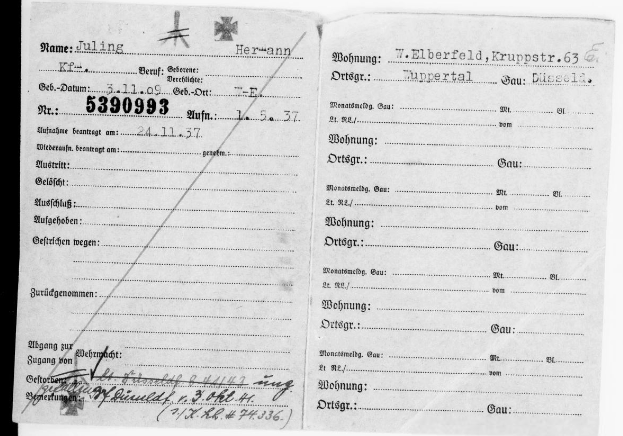 Name: Juling Hermann
Beruf: Geborene:
Verehlichte:
Geb.-Datum: 3.11.09 Geb.-Ort: W-E.
Nr.: 5390993 Aufn.: 1.5.37
Aufnahme beantragt am: 24.11.37
Wiederaufn. beantragt am: genehm.:
Austritt:
Gelöscht:
Ausschluß:
Aufgehoben:
Gestrichen wegen:
Zurückgenommen:
Abgang zur
Zugang von Wehrmacht:
Gestorben:
Bemerkungen:
Wohnung: W.Elberfeld, Kruppstr. 63
Ortsgr.: Wuppertal Gau: Düsseld.
Monatsmeldg. Gau: Mt. Bl.
Lt. RL./ vom
Wohnung:
Ortsgr.: Gau:
Monatsmeldg. Gau: Mt. Bl.
Lt. RL./ vom
Wohnung:
Ortsgr.: Gau:
Monatsmeldg. Gau: Mt. Bl.
Lt. RL./ vom
Wohnung:
Ortsgr.: Gau:
Monatsmeldg. Gau: Mt. Bl.
Lt. RL./ vom
Wohnung:
Ortsgr.: Gau: